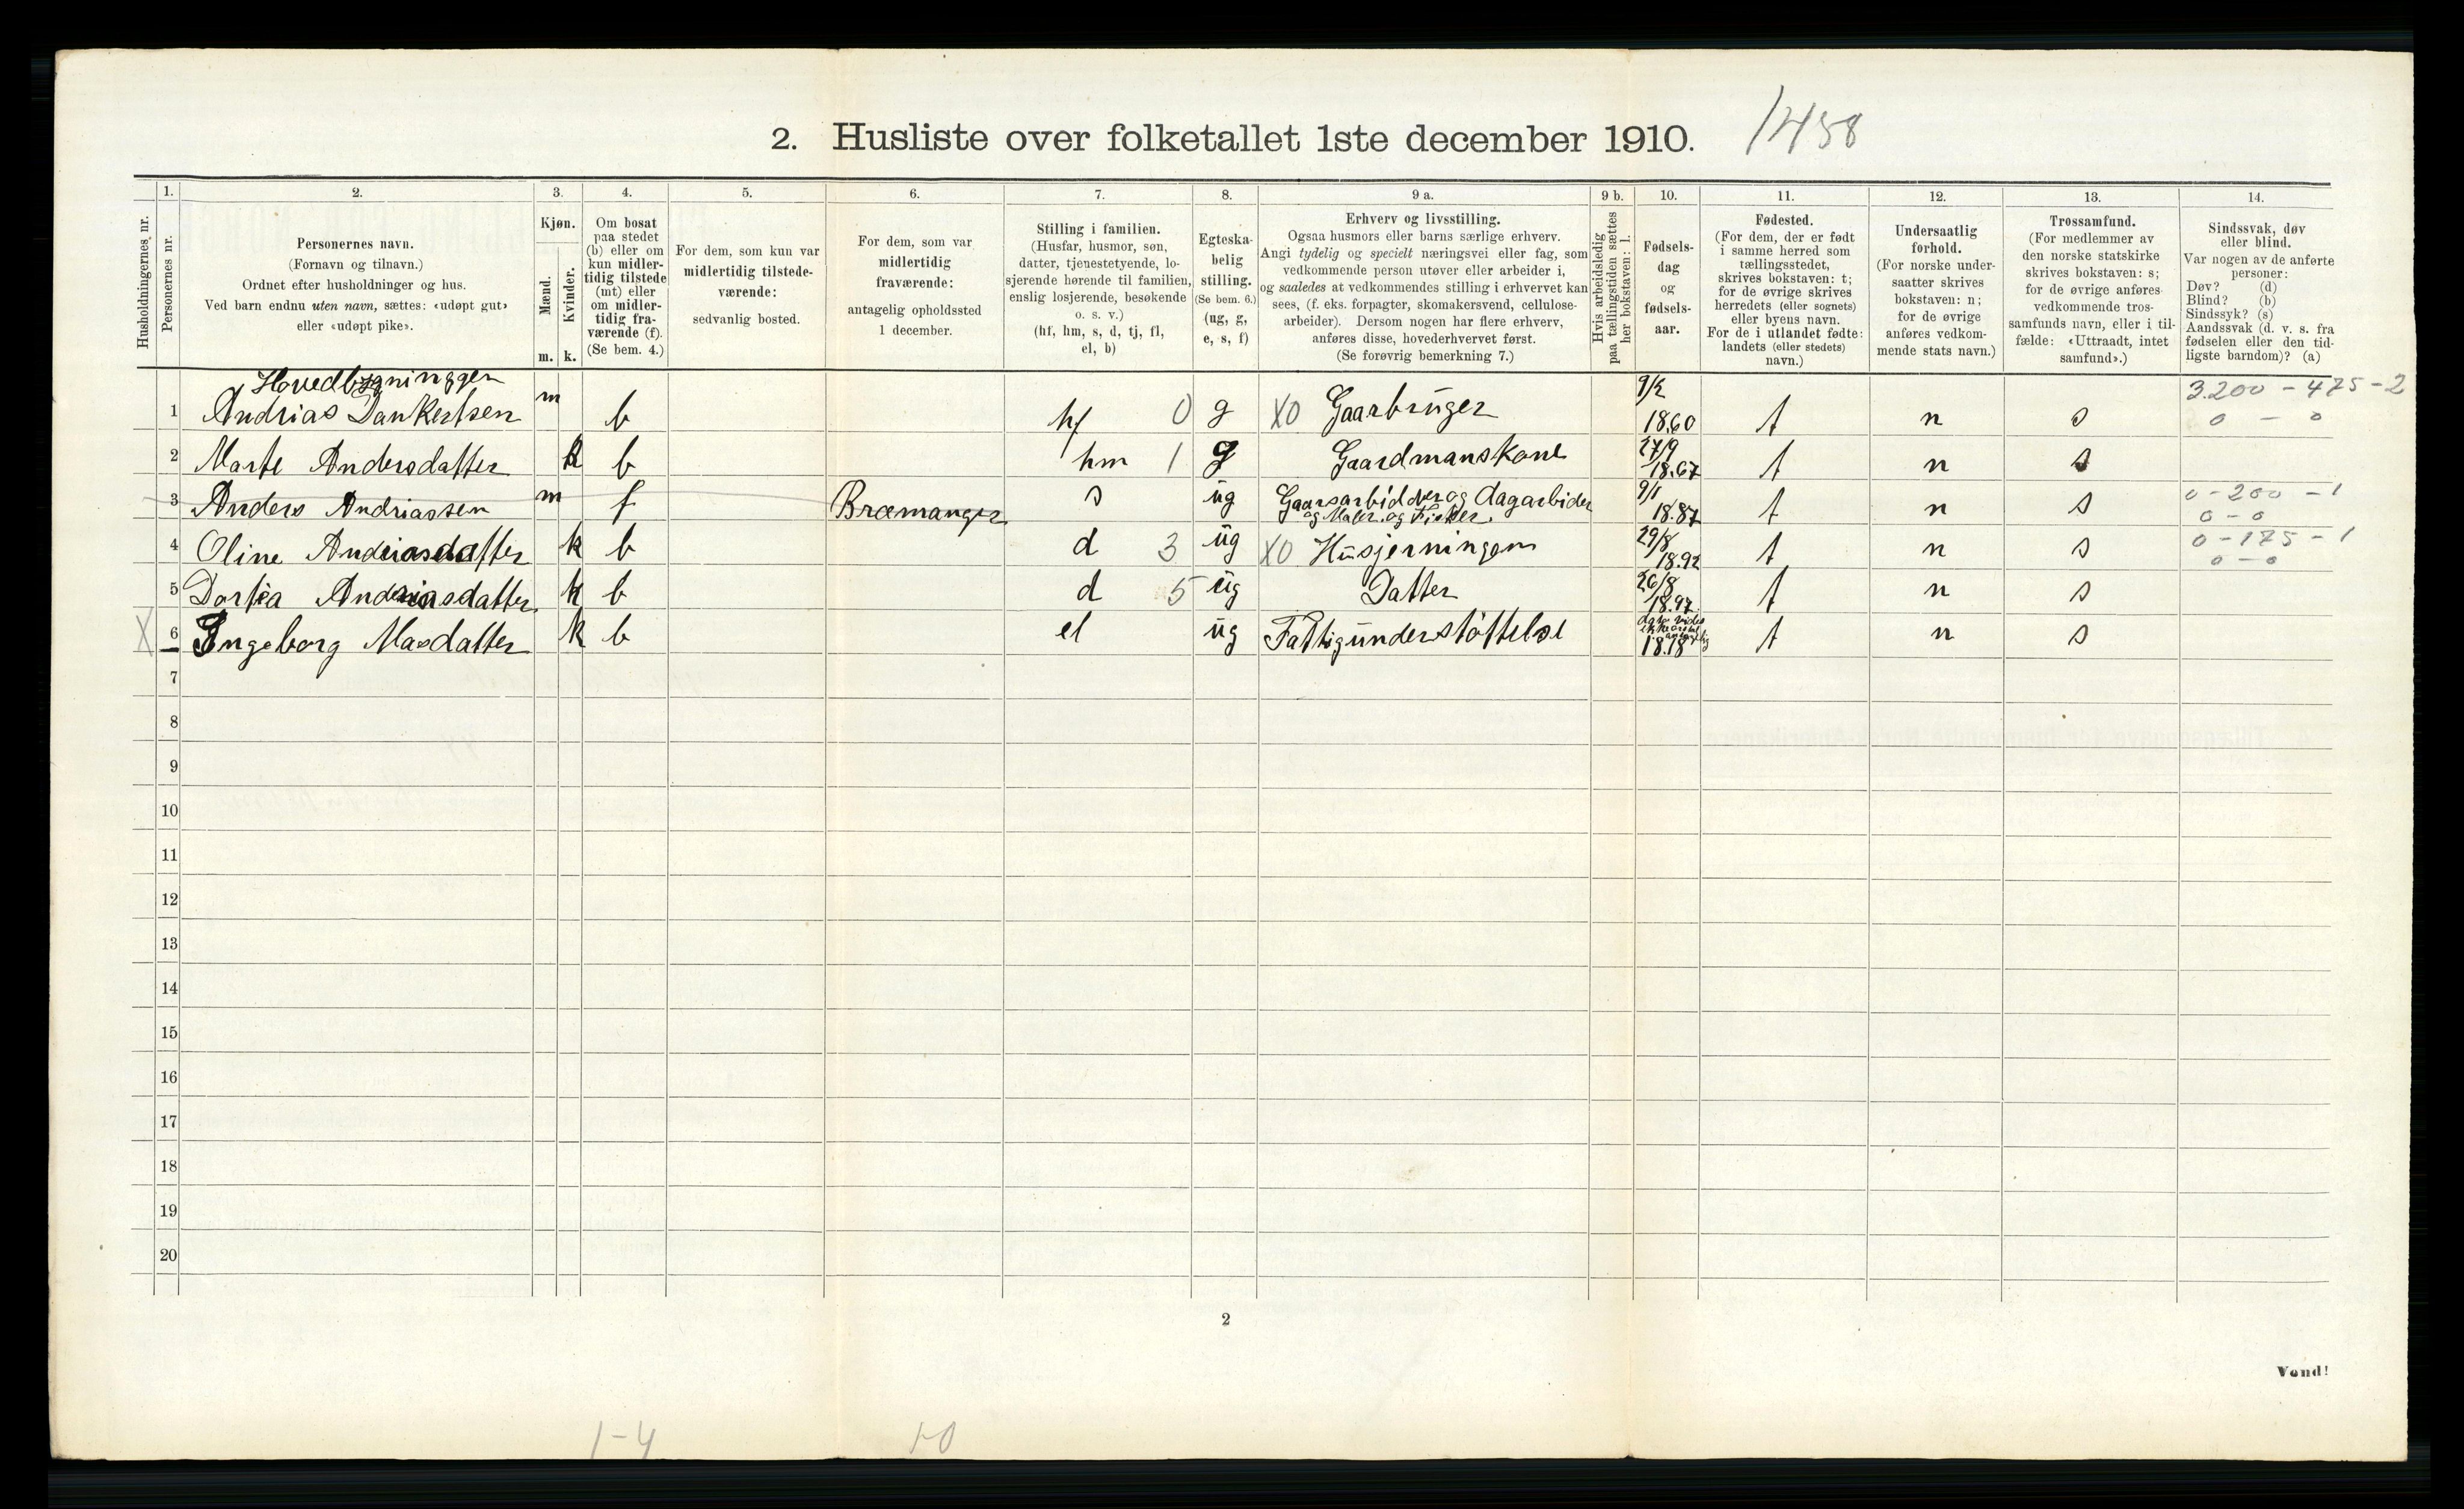 2. Husliste over folketallet 1ste december 1910. 1458
Husholdningernes nr.
1.
Personernes nr.
2.
Personernes navn.
(Fornavn og tilnavn.)
Ordnet efter husholdninger og hus.
Ved barn endnu uten navn, sættes: «udøpt gut»
eller «udøpt pike».
3.
Kjøn.
Mænd.
Kvinder.
m. k.
4.
Om bosat
paa stedet
(b) eller om
kun midler-
tidig tilstede
(mt) eller
om midler-
tidig fra-
værende (f).
(Se bem. 4.)
5.
For dem, som kun var
midlertidig tilstede-
værende:
sedvanlig bosted.
6.
For dem, som var
midlertidig
fraværende:
antagelig opholdssted
1 december.
7.
Stilling i familien.
(Husfar, husmor, søn,
datter, tjenestetyende, lo-
sjerende hørende til familien,
enslig losjerende, besøkende
o. s. v.)
(hf, hm, s, d, tj, fl,
el, b)
8.
Egteska-
belig
stilling.
(Se bem. 6.)
(ug, g,
e, s, f)
9 a.
Erhverv og livsstilling.
Ogsaa husmors eller barns særlige erhverv.
Angi tydelig og specielt næringsvei eller fag, som
vedkommende person utøver eller arbeider i,
og saaledes at vedkommendes stilling i erhvervet kan
sees, (f. eks. forpagter, skomakersvend, cellulose-
arbeider). Dersom nogen har flere erhverv,
anføres disse, hovederhvervet først.
(Se forøvrig bemerkning 7.)
9 b.
Hvis arbeidsledig
paa tællingstiden sættes
her bokstaven: l.
10.
Fødsels-
dag
og
fødsels-
aar.
11.
Fødested.
(For dem, der er født
i samme herred som
tællingsstedet,
skrives bokstaven: t;
for de øvrige skrives
herredets (eller sognets)
eller byens navn.
For de i utlandet fødte:
landets (eller stedets)
navn.)
12.
Undersaatlig
forhold.
(For norske under-
saatter skrives
bokstaven: n;
for de øvrige
anføres vedkom-
mende stats navn.)
13.
Trossamfund.
(For medlemmer av
den norske statskirke
skrives bokstaven: s;
for de øvrige anføres
vedkommende tros-
samfunds navn, eller i til-
fælde: «Uttraadt, intet
samfund».)
14.
Sindssvak, døv
eller blind.
Var nogen av de anførte
personer:
Døv? (d)
Blind? (b)
Sindssyk? (s)
Aandssvak (d. v. s. fra
fødselen eller den tid-
ligste barndom)? (a)
Hovedbygninggen
1 Andrias Dankertsen m b hf 0 g X0 Gaarbrüger 9/2 1860 t n s 3.200 - 475 - 2
0 - 0
2 Marte Andersdatter k b hm 1 g Gaardmanskone 27/9 1867 t n s
3 Anders Andriassen m f Bræmanger s üg Gaarsarbidder og dagarbider 9/1 1887 t n s 0 - 200 - 1
og Maler. og Fisker. 0 - 0
4 Oline Andriasdatter k b d 3 üg X0 Hüsjerningem 29/8 18.92 t n s 0 - 175 - 1
0 - 0
5 Dortea Andriasdatter k b d 5 üg Datter 26/8 18.97 t n s
X 6 Engeborg Masdatter k b el üg Fattigünderstøttelse 18.18 t n s
7
8
9
10
11
12
13
14
15
16
17
18
19
20
2
Vend!
1-4 1-0